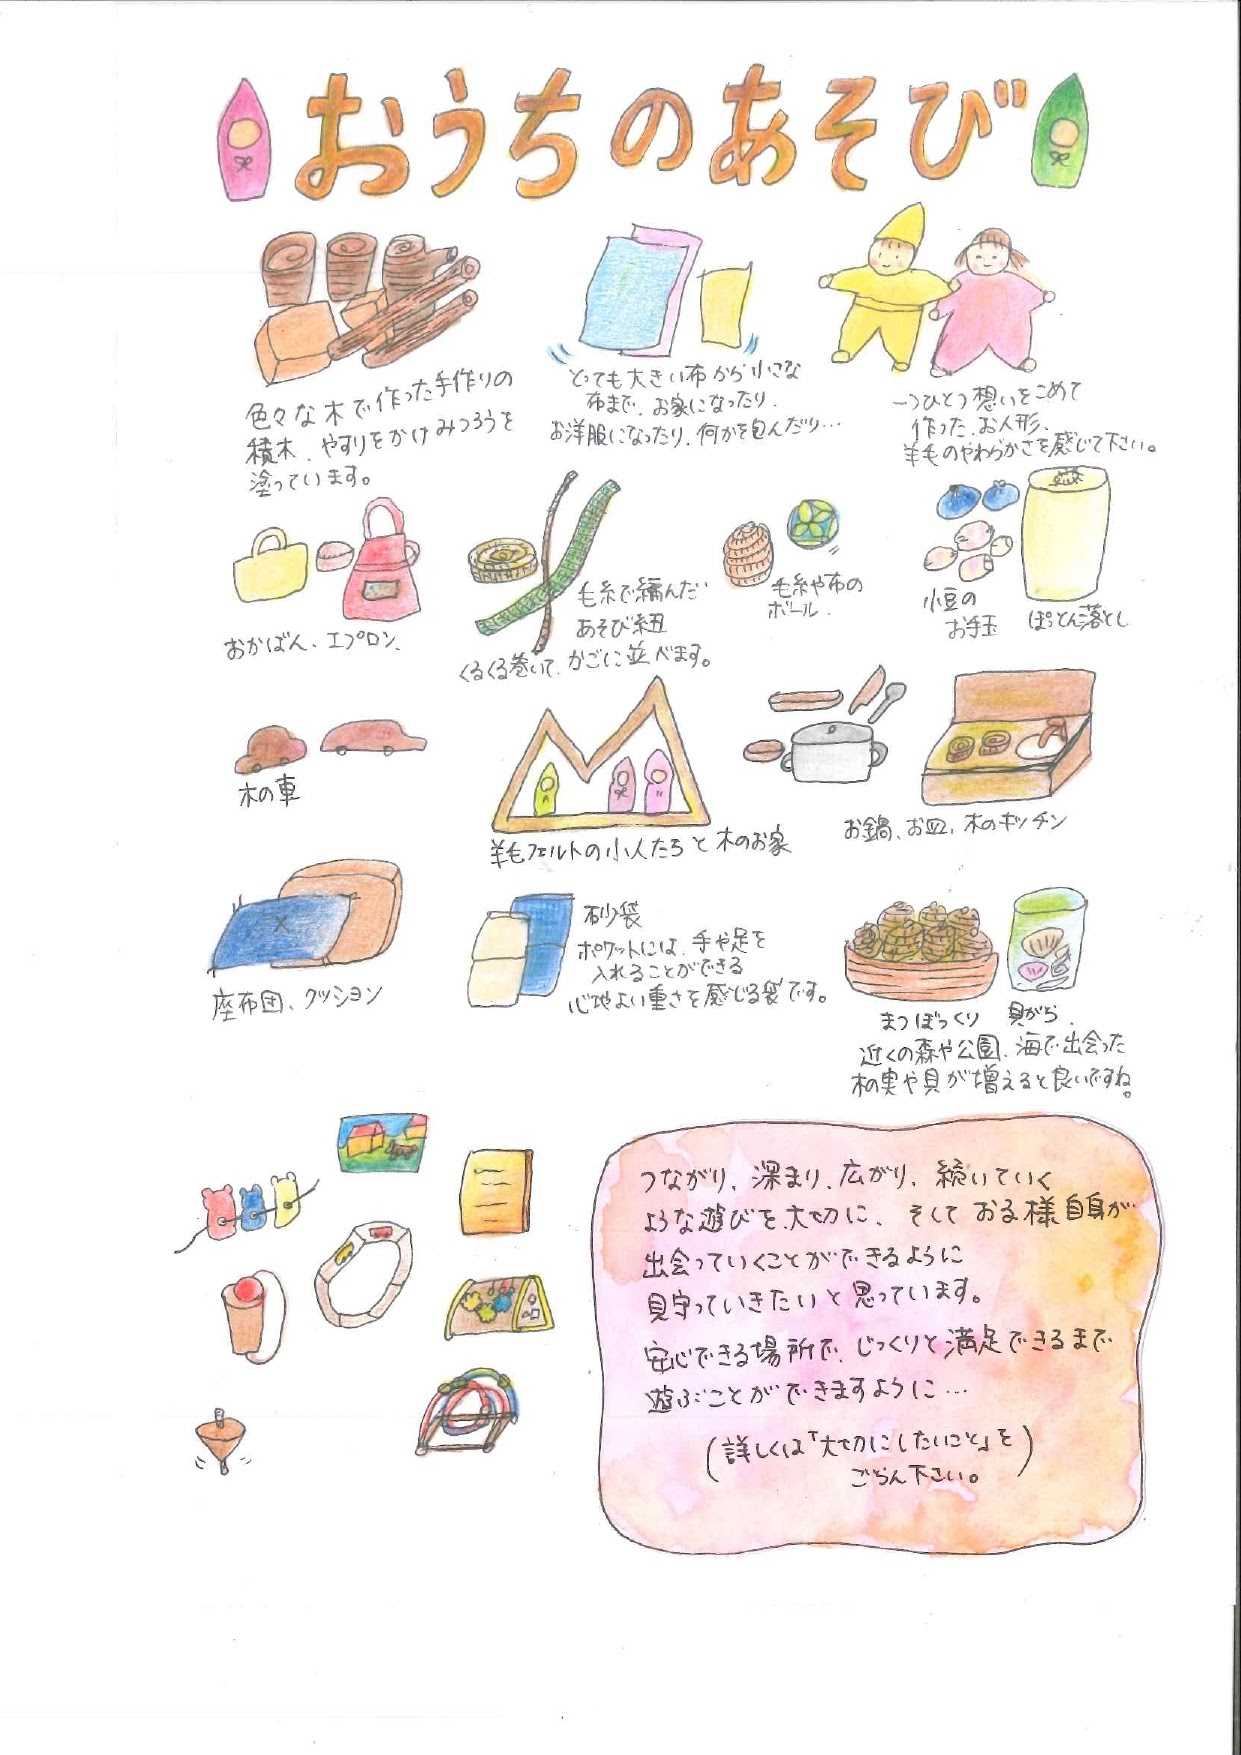 おうちのあそび
色々な木で作った手作りの
積木、やすりをかけみつろうを
塗っています。
とっても大きい布から小さな
布まで、お家になったり、
お洋服になったり、何かを包んだり…
一つひとつ想いをこめて
作った、お人形、
羊毛のやわらかさを感じて下さい。
おかばん、エプロン、
毛糸で編んだ
あそび紐
くるくる巻いて、かごに並べます。
毛糸や布の
ボール、
小豆の
お手玉
ぽっとん落とし
木の車
羊毛フェルトの小人たちと木のお家
お鍋、お皿、木のキッチン
座布団、クッション
砂袋
ポケットには、手や足を
入れることができる
心地よい重さを感じる袋です。
まつぼっくり 貝がら、
近くの森や公園、海で出会った
木の実や貝が増えると良いですね。
つながり、深まり、広がり、続いていく
ような遊びを大切に、そして お子様自身が
出会っていくことができるように
見守っていきたいと思っています。
安心できる場所で、じっくりと満足できるまで
遊ぶことができますように…
(詳しくは「大切にしたいこと」を
ごらん下さい。)